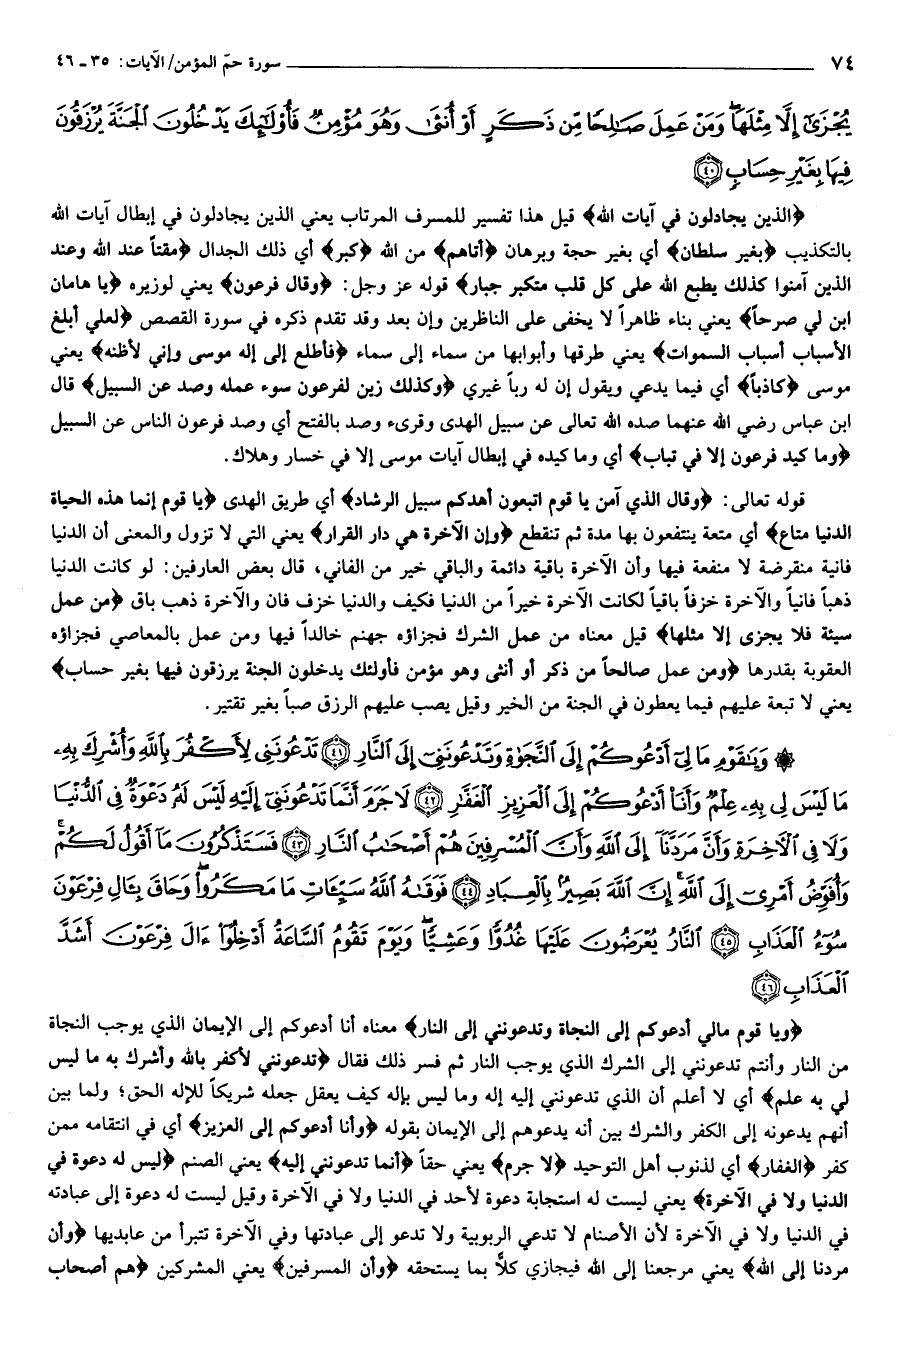 ٧٤ سورة حمّ المؤمن/ الآيات: ٣٥ ـ ٤٦
يُجْزَىٰٓ إِلَّا مِثْلَهَا ۖ وَمَنْ عَمِلَ صَـٰلِحًا مِّن ذَكَرٍ أَوْ أُنثَىٰ وَهُوَ مُؤْمِنٌ فَأُو۟لَـٰٓئِكَ يَدْخُلُونَ ٱلْجَنَّةَ يُرْزَقُونَ
فِيهَا بِغَيْرِ حِسَابٍ ﴿٤٠﴾
﴿الذين يجادلون في آيات الله﴾ قيل هذا تفسير للمسرف المرتاب يعني الذين يجادلون في إبطال آيات الله
بالتكذيب ﴿بغير سلطان﴾ أي بغير حجة وبرهان ﴿أتاهم﴾ من الله ﴿كبر﴾ أي ذلك الجدال ﴿مقتاً عند الله وعند
الذين آمنوا كذلك يطبع الله على كل قلب متكبر جبار﴾ قوله عز وجل: ﴿وقال فرعون﴾ يعني لوزيره ﴿يا هامان
ابن لي صرحاً﴾ يعني بناء ظاهراً لا يخفى على الناظرين وإن بعد وقد تقدم ذكره في سورة القصص ﴿لعلي أبلغ
الأسباب أسباب السموات﴾ يعني طرقها وأبوابها من سماء إلى سماء ﴿فأطلع إلى إله موسى وإني لأظنه﴾ يعني
موسى ﴿كاذباً﴾ أي فيما يدعي ويقول إن له رباً غيري ﴿وكذلك زين لفرعون سوء عمله وصد عن السبيل﴾ قال
ابن عباس رضي الله عنهما صده الله تعالى عن سبيل الهدى وقرىء وصد بالفتح أي وصد فرعون الناس عن السبيل
﴿وما كيد فرعون إلا في تباب﴾ أي وما كيده في إبطال آيات موسى إلا في خسار وهلاك.
قوله تعالى: ﴿وقال الذي آمن يا قوم اتبعون أهدكم سبيل الرشاد﴾ أي طريق الهدى ﴿يا قوم إنما هذه الحياة
الدنيا متاع﴾ أي متعة ينتفعون بها مدة ثم تنقطع ﴿وإن الآخرة هي دار القرار﴾ يعني التي لا تزول والمعنى أن الدنيا
فانية منقرضة لا منفعة فيها وأن الآخرة باقية دائمة والباقي خير من الفاني، قال بعض العارفين: لو كانت الدنيا
ذهباً فانياً والآخرة خزفاً باقياً لكانت الآخرة خيراً من الدنيا فكيف والدنيا خزف فان والآخرة ذهب باق ﴿من عمل
سيئة فلا يجزى إلا مثلها﴾ قيل معناه من عمل الشرك فجزاؤه جهنم خالداً فيها ومن عمل بالمعاصي فجزاؤه
العقوبة بقدرها ﴿ومن عمل صالحاً من ذكر أو أنثى وهو مؤمن فأولئك يدخلون الجنة يرزقون فيها بغير حساب﴾
يعني لا تبعة عليهم فيما يعطون في الجنة من الخير وقيل يصب عليهم الرزق صباً بغير تقتير.
۞ وَيَـٰقَوْمِ مَا لِىٓ أَدْعُوكُمْ إِلَى ٱلنَّجَوٰةِ وَتَدْعُونَنِىٓ إِلَى ٱلنَّارِ ﴿٤١﴾ تَدْعُونَنِى لِأَكْفُرَ بِٱللَّهِ وَأُشْرِكَ بِهِۦ
مَا لَيْسَ لِى بِهِۦ عِلْمٌ وَأَنَا۠ أَدْعُوكُمْ إِلَى ٱلْعَزِيزِ ٱلْغَفَّـٰرِ ﴿٤٢﴾ لَا جَرَمَ أَنَّمَا تَدْعُونَنِىٓ إِلَيْهِ لَيْسَ لَهُۥ دَعْوَةٌ فِى ٱلدُّنْيَا
وَلَا فِى ٱلْآخِرَةِ وَأَنَّ مَرَدَّنَآ إِلَى ٱللَّهِ وَأَنَّ ٱلْمُسْرِفِينَ هُمْ أَصْحَـٰبُ ٱلنَّارِ ﴿٤٣﴾ فَسَتَذْكُرُونَ مَآ أَقُولُ لَكُمْ ۚ
وَأُفَوِّضُ أَمْرِىٓ إِلَى ٱللَّهِ ۚ إِنَّ ٱللَّهَ بَصِيرٌۢ بِٱلْعِبَادِ ﴿٤٤﴾ فَوَقَىٰهُ ٱللَّهُ سَيِّـَٔاتِ مَا مَكَرُوا۟ ۖ وَحَاقَ بِـَٔالِ فِرْعَوْنَ
سُوٓءُ ٱلْعَذَابِ ﴿٤٥﴾ ٱلنَّارُ يُعْرَضُونَ عَلَيْهَا غُدُوًّا وَعَشِيًّا ۖ وَيَوْمَ تَقُومُ ٱلسَّاعَةُ أَدْخِلُوٓا۟ ءَالَ فِرْعَوْنَ أَشَدَّ
ٱلْعَذَابِ ﴿٤٦﴾
﴿ويا قوم مالي أدعوكم إلى النجاة وتدعونني إلى النار﴾ معناه أنا أدعوكم إلى الإيمان الذي يوجب النجاة
من النار وأنتم تدعونني إلى الشرك الذي يوجب النار ثم فسر ذلك فقال ﴿تدعونني لأكفر بالله وأشرك به ما ليس
لي به علم﴾ أي لا أعلم أن الذي تدعونني إليه إله وما ليس بإله كيف يعقل جعله شريكاً للإله الحق؛ ولما بين
أنهم يدعونه إلى الكفر والشرك بين أنه يدعوهم إلى الإيمان بقوله ﴿وأنا أدعوكم إلى العزيز﴾ أي في انتقامه ممن
كفر ﴿الغفار﴾ أي لذنوب أهل التوحيد ﴿لا جرم﴾ يعني حقاً ﴿أنما تدعونني إليه﴾ يعني الصنم ﴿ليس له دعوة في
الدنيا ولا في الآخرة﴾ يعني ليست له استجابة دعوة لأحد في الدنيا ولا في الآخرة وقيل ليست له دعوة إلى عبادته
في الدنيا ولا في الآخرة لأن الأصنام لا تدعي الربوبية ولا تدعو إلى عبادتها وفي الآخرة تتبرأ من عابديها ﴿وأن
مردنا إلى الله﴾ يعني مرجعنا إلى الله فيجازي كلاًّ بما يستحقه ﴿وأن المسرفين﴾ يعني المشركين ﴿هم أصحاب